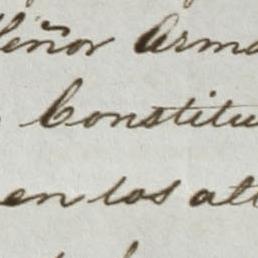 Señor Arma
Constitu
en los alt